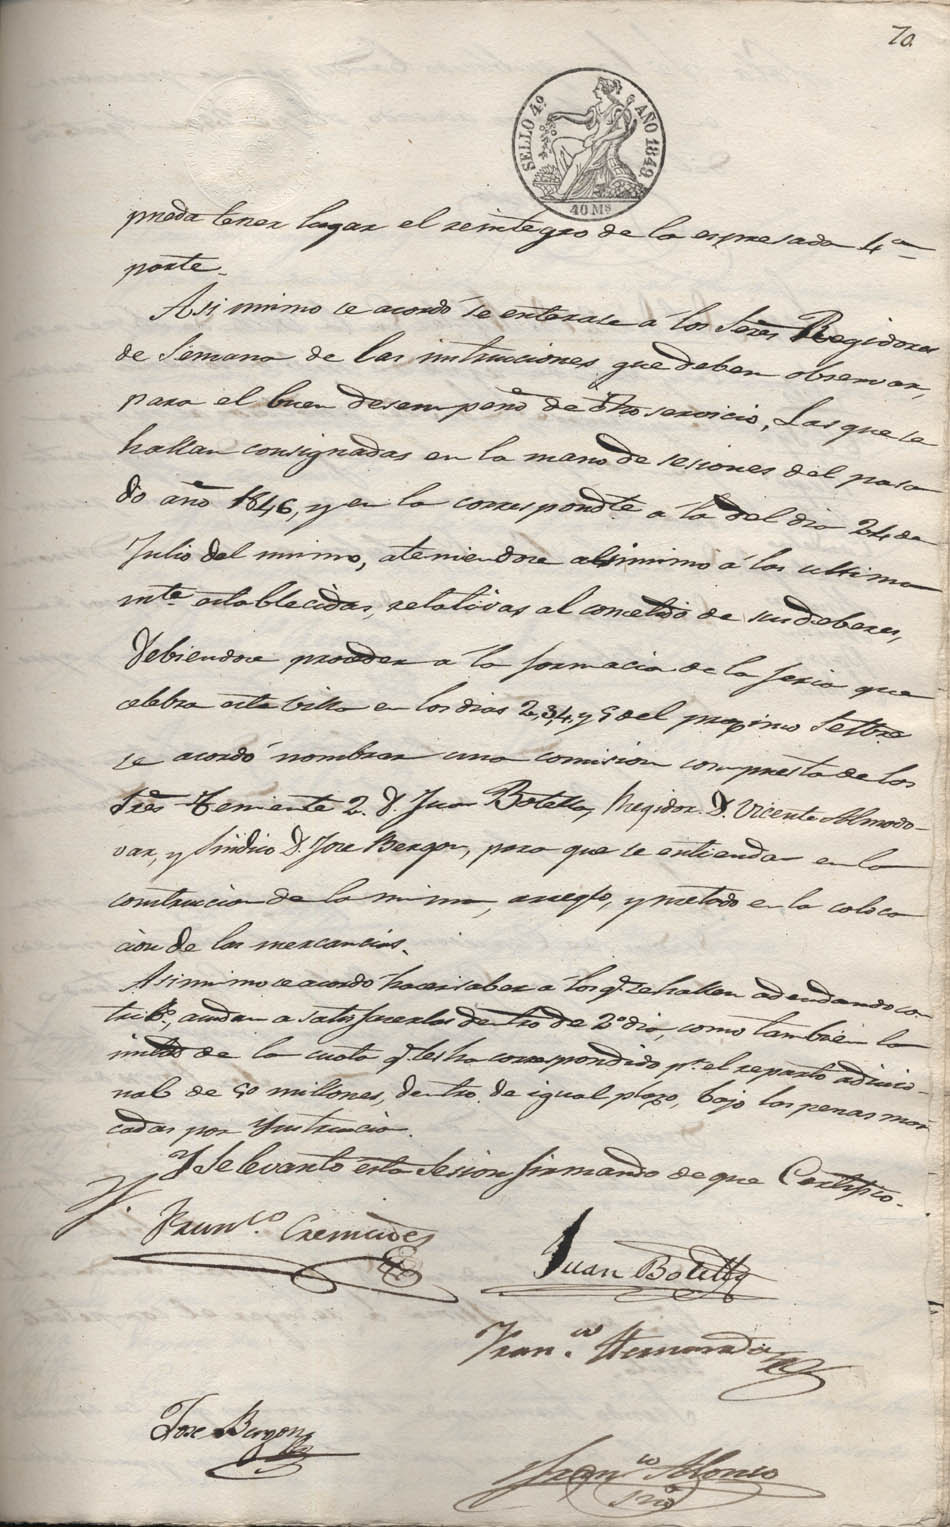 70
SELLO 4º AÑO 1849.
40 Ms
pueda tener lugar el reintegro de la espresada 4.ª
parte.
Asi mimo se acordó se enterase a los Señes Regidores
de Semana de las instrucciones que deben observar,
para el buen desempeño de dho servicio, Las que se
hallan consignadas en la mano de sesiones del pasa
do año 1846, y en la correspondte a la del dia 24 de
Julio del mimo, ateniendose asimimo á las ultima
mte establecidas, relativas al cometido de sus deberes,
Debiendose proceder a la formacia de la feria que
celebra esta villa en los dias 2, 3, 4, y 5 del proximo Setbre
se acordó nombrar una comision compuesta de los
Sres Teniente 2. D. Juan Botella, Regidor D. Vicente Almodo-
var, y Sindico D. Jose Bergon, para que se entiendan en la
construccion de la mima, arreglo, y metodo en la coloca
cion de las mercancias.
Asimimo se acordó hacer saber a los q.e se hallen adeudando con
tribs., acudan a satisfacerlas dentro de 2º dia, como tambien la
mitad de la cuota q.e les ha correspondido pr. el reparto adicio-
nal de 50 millones, dentro de igual plazo, bajo las penas mar
cadas por Ynstruccion.
Y se levantó esta Sesion firmando de que Certifico.
Franco. Cremades
Juan Botella
Fran.co Hernandez
Jose Bergon
Franco Alonso
srio